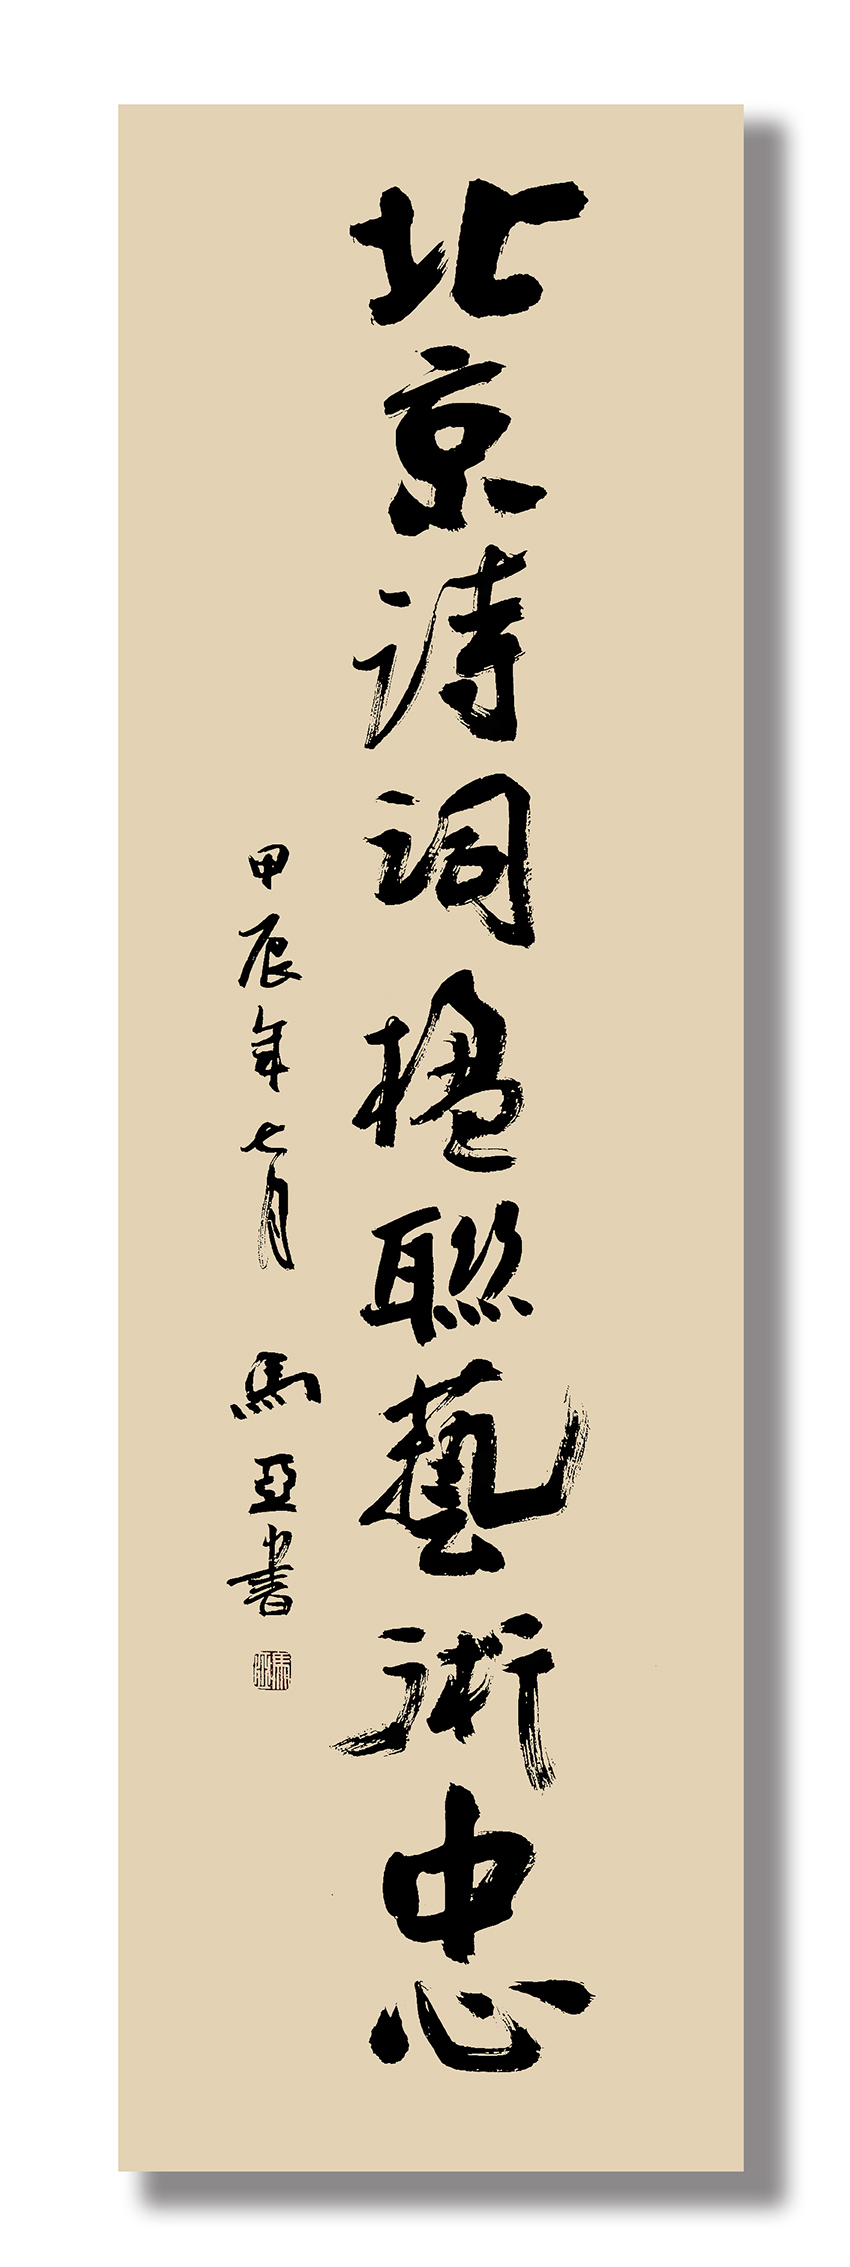 北京诗词楹聯藝術中心
甲辰年七月 馬亞書